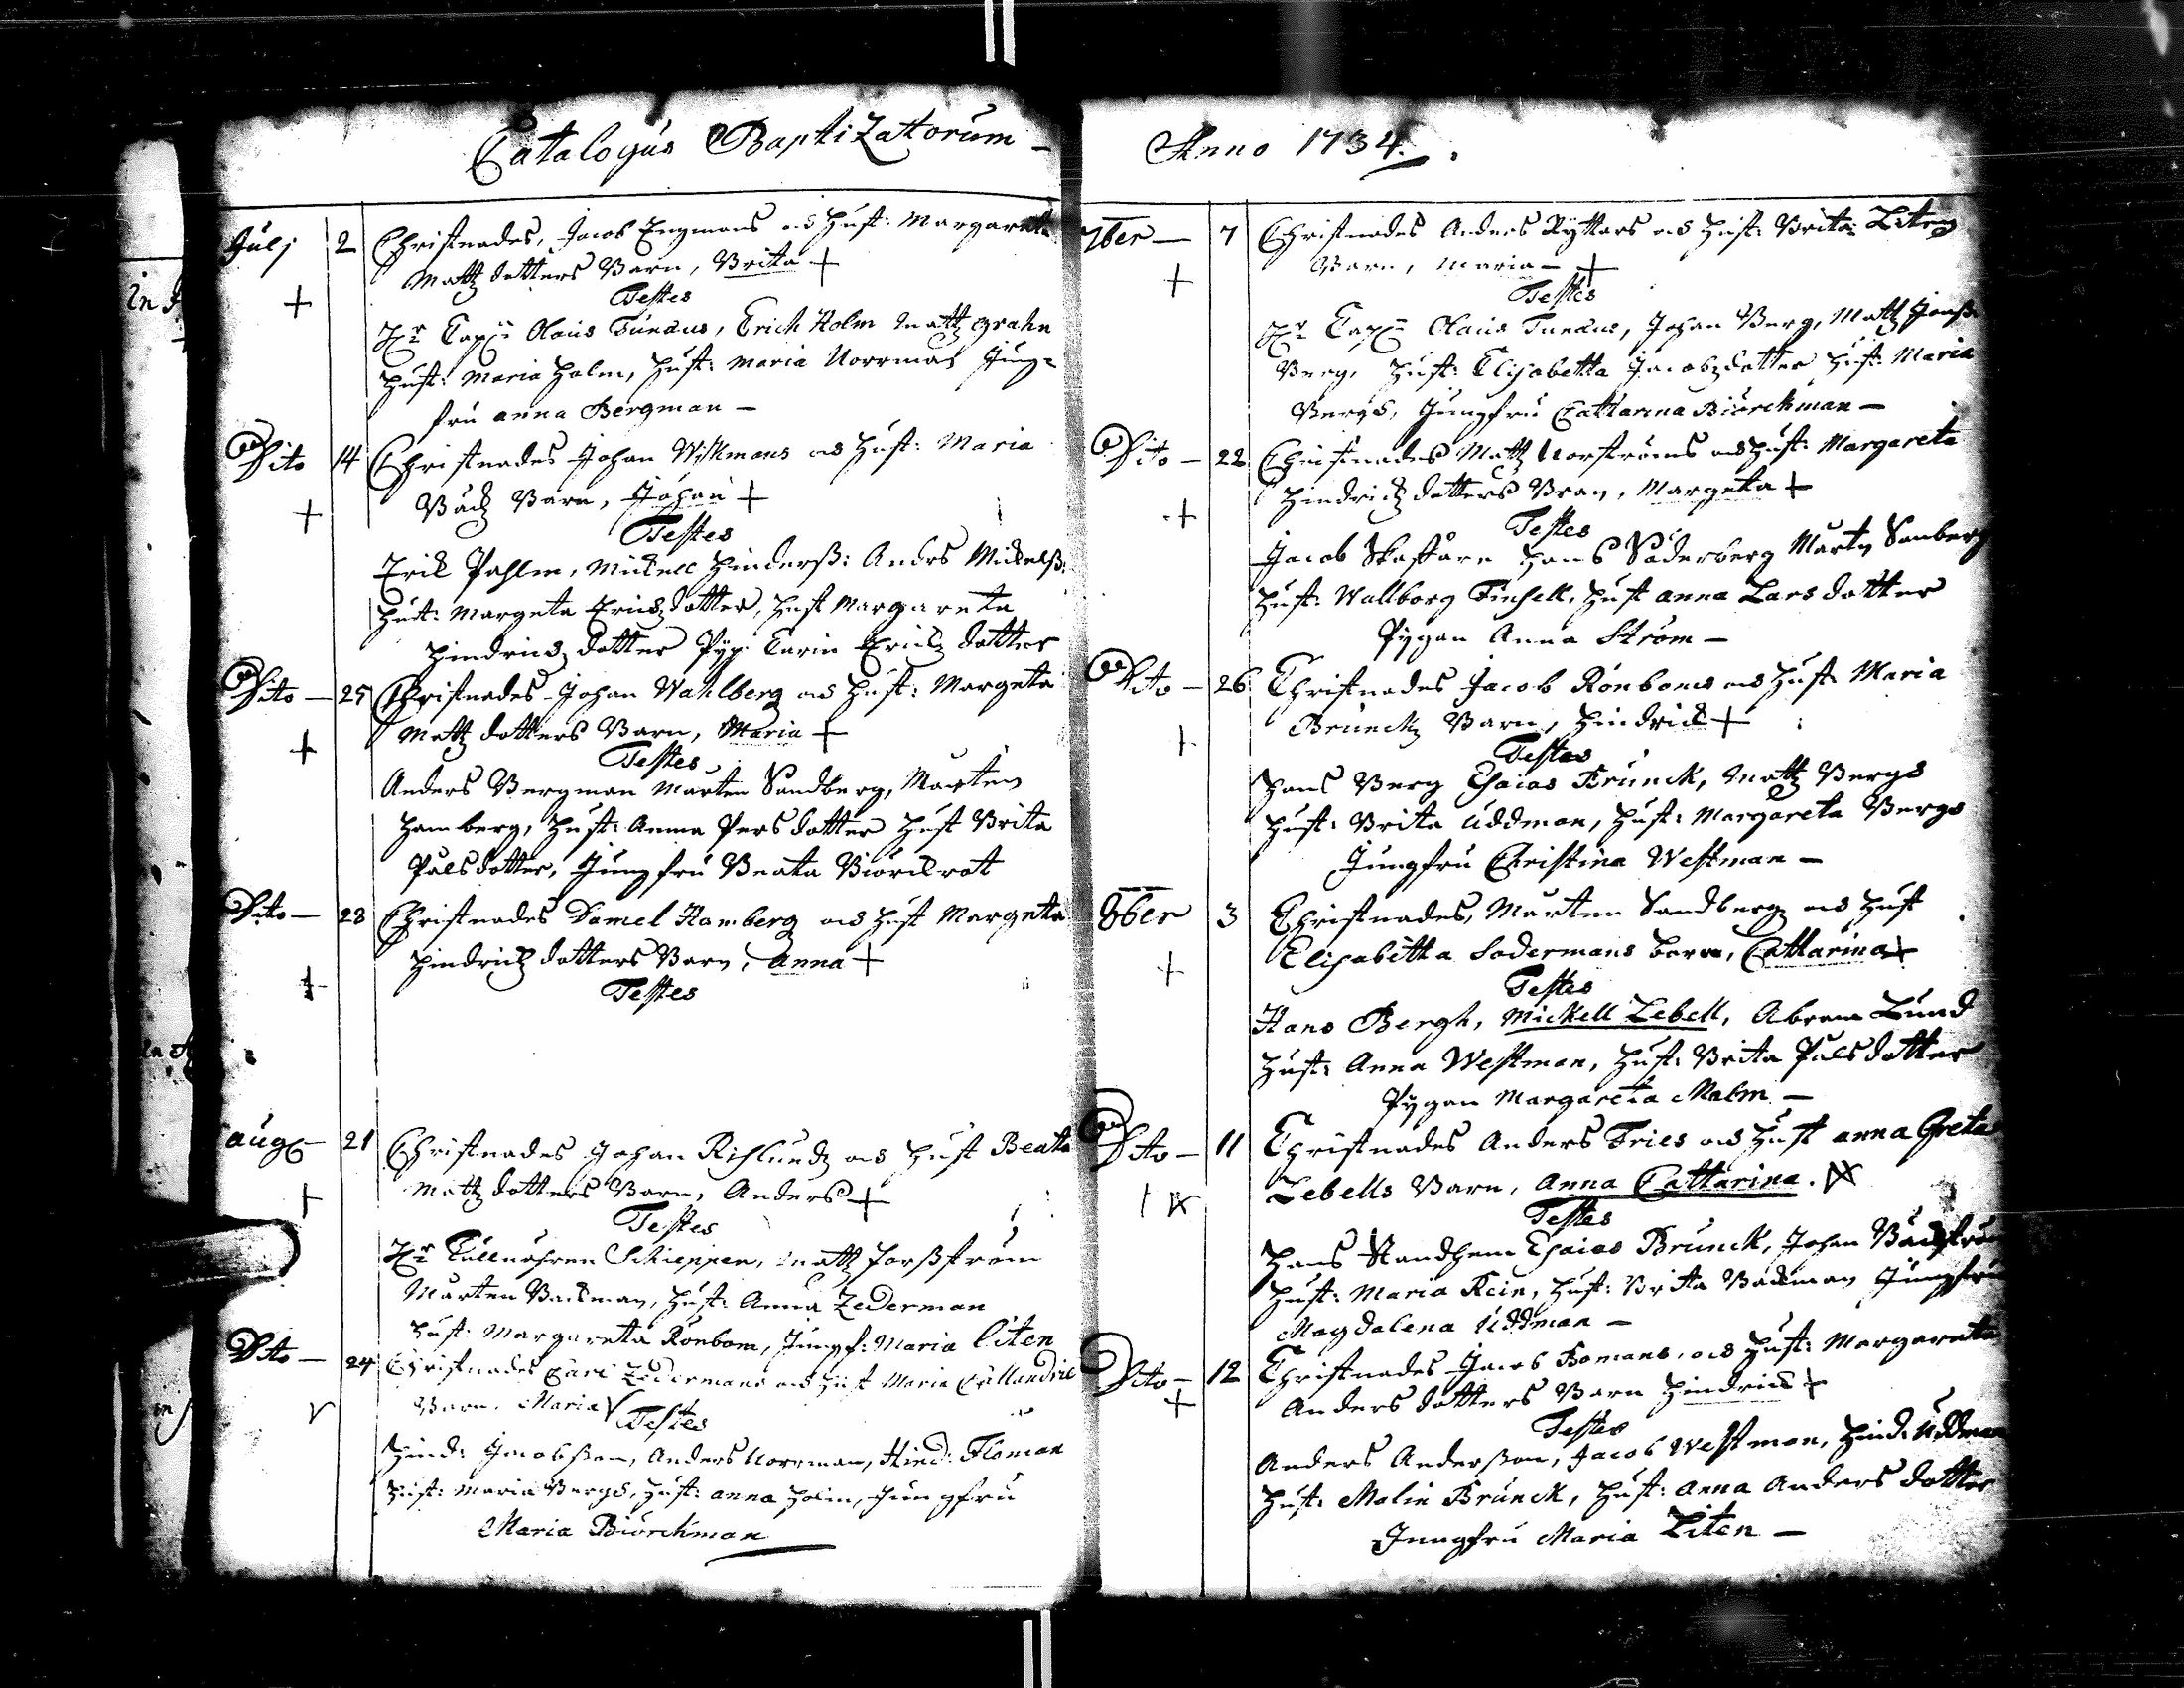 Catalogus Baptizattorum –
Julj 2 Christnades, Jacob Engmans och Hust: Margareta
Mattz dotters Barn, Brita +
Testes
Hr Cap: Olaus Tunæus, Erich Holm Mattz Grahn
Hust: Maria Holm, Hust: Maria Norrman Jung=
fru Anna Bergman –
Dito 14 Christnades Johan Wikmans och Hust: Maria
Bäcks Barn, Johan +
Testes
Erik Pahlm, Mickell Hinderß: Anders Mickelß:
Hust: Margeta Ericksdotter, Hust Margareta
Hindricks dotter Pyg: Carin Ericks dotter
Dito – 25 Christnades Johan Wahlberg och Hust: Margeta
Mattz dotters Barn, Maria +
Testes
Anders Bergman Mårten Sandberg, Mårten
Hamberg, Hust: Anna Persdotter Hust Brita
Pålsdotter, Jungfru Beata Biörckrot
Dito – 28 Christnades Daniel Hamberg och Hust Margeta
Hindricks dotters Barn, Anna +
Testes
Aug – 21 Christnades Johan Rislundz och Hust Beata
Mattz dotters Barn, Anders +
Testes
Hr Tullnähren Schieppen, Mattz Forßström
Mårten Backman, Hust: Anna Zederman
Hust: Margareta Rönbom, Jungf: Maria Liten
Dito – 24 Christnades Carl Zedermans och Hust Maria
Barn. Maria
Testes
Hind: Jacobßon, Anders Norrman, Hind: Floman
Hust: Maria Bergs, Hust: Anna Holm, Jungfru
Maria Biörckman
Anno 1734.
7ber – 7 Christnades Anders Ryttars och Hust: Brita Liten
Barn, Maria – +
Testes
Hr Cap: Olaus Tunæus, Johan Berg, Mattz Janß:
Berg, Hust: Elisabetta Jacobsdotter Hust: Maria
Bergs, Jungfru Cattarina Biörckman –
Dito – 22 Christnades Mattz Norströms och Hust: Margareta
Hindricks dotters Bran, Margeta +
Testes
Jacob Skaffare Hans Söderberg Mårtn Sanberg
Hust: Wallborg Finsell, Hust Anna Larsdotter
Pygan Anna Ström –
Dito – 26 Christnades Jacob Rönboms och Hust Maria
Bruncks Barn, Hindrick +
Testes
Hans Berg Esaias Brunck, Mattz Bergs
Hust: Brita Uddman, Hust: Margareta Bergs
Jungfru Christina Westman –
8ber 3 Christnades, Mårten Sandberg och Hust
Elisabetta Södermans barn, Cattarina +
Testes
Hans Bergh, Mickell Lebell, Abram Lund
Hust: Anna Westman, Hust: Brita Pålsdotter
Pygan Margareta Malm –
Dito – 11 Christnades Anders Fries och Hust Anna Greta
Lebells Barn, Anna Cattarina.
Testes
Hans Standhem Esaias Brunck, Johan Bäckströ
Hust: Maria Rein, Hust: Brita Backman Jungfru
Magdalena Uddman –
Dito – 12 Christnades Jacob Bomans, och Hust: Margareta
Anders dotters Barn Hindrick +
Testes
Anders Anderßon, Jacob Westman, Hind: Uddman
Hust: Malin Brunck, Hust: Anna Anders dotter
Jungfru Maria Liten –